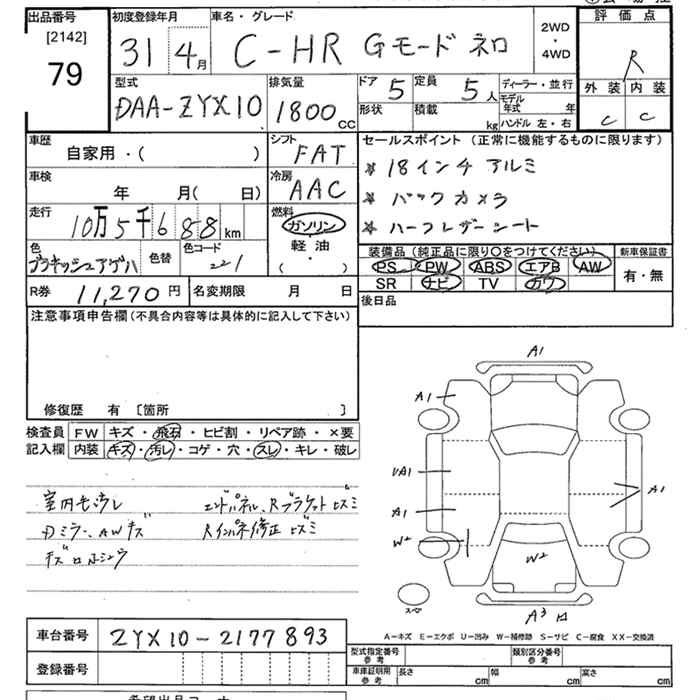 出品番号 初度登録年月 車名・グレード 2WD・4WD 評価点
[2142]
79
31 4月 C-HR Gモード ネロ R
外装 内装
C C
型式 排気量 ドア 5 定員 5人 ディーラー・並行
DAA-ZYX10 1800cc 形状 積載 kg モデル年式 年
ハンドル 左・右
車歴 シフト セールスポイント (正常に機能するものに限ります)
自家用・( ) FAT
★ 18インチ アルミ
車検 冷房
年 月( 日) AAC
★ バックカメラ
走行 燃料
10万5千688km ガソリン
★ ハーフレザーシート
軽油
・( )
色 色替 色コード 221
装備品 (純正品に限り〇をつけてください) 新車保証書
PS PW ABS エアB AW
SR ナビ TV カワ
有・無
R券 11,270円 名変期限 月 日
後日品
注意事項申告欄(不具合内容等は具体的に記入して下さい)
修復歴 有 〔箇所 〕
検査員 FW キズ・飛石・ヒビ割・リペア跡・×要
記入欄 内装 キズ・汚レ・コゲ・穴・スレ・キレ・破レ
室内キズ汚レ エンドパネル、Rブラケットヒズミ
Dミラー、AWキズ Rインパネ修正ヒズミ
A1
A1
UA1
A1
W2
A1
W2
スペア
A3
A―キズ E―エクボ U―凹み W―補修跡 S―サビ C―腐食 XX―交換済
車台番号 ZYX10-2177893
登録番号
型式指定番号 参考 類別区分番号 参考
車庫証明用 参考 長さ cm 幅 cm 高さ cm